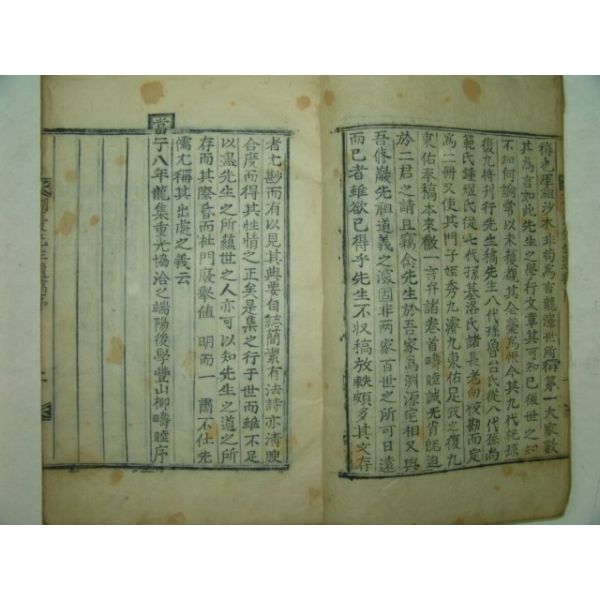 稱東厓祖汐水非苟爲言龍灣世所第一大家數
其爲言如此先生之學行文章其可知已後世之知
不知何論常以未獲覩其全藁爲恨今其九代祀孫
復九將刊行先生稿先生八代孫魯台氏從八代孫尚
範氏鍾煜氏從七代孫基洛氏諸長老校勘而定
爲二冊又使其門子姪秀九濟九東佑足致之復九
東佑奉稿本來徵一言弁諸卷首疇睦誠无肖迫
於二君之請且竊念先生於吾家爲淵源宅相又與
吾修巖先祖道義之深固非兩家百世之所可日遠
而已者雖欲已得乎先生不収稿放軼頗多其文存
者尤尠而有以見其典要自簡潔有法詩亦清腴
合度而得其性情之正矣是集之行于世而雖不足
以盡先生之所蘊世之人亦可以知先生之道之所
存而其際昏而杜門廢擧値 明而一 肅不仕先
儒尤稱其出處之義云
當宁八年龍集重光協洽之端陽後學豐山柳疇睦序